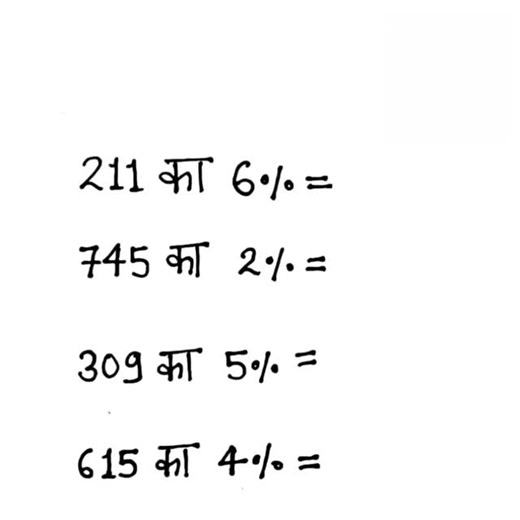 211 का 6% =
745 का 2% =
309 का 5% =
615 का 4% =